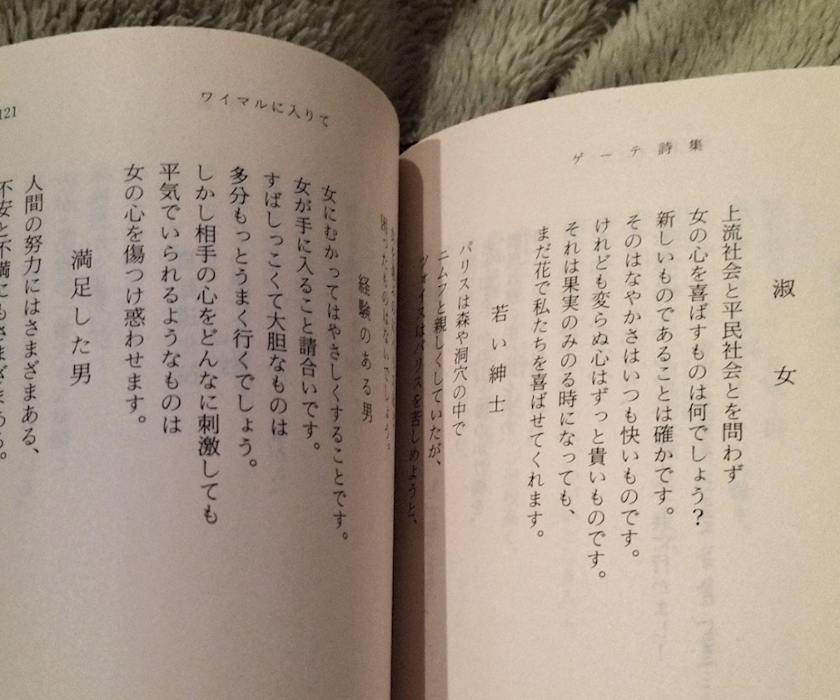 ゲーテ詩集
淑女
上流社会と平民社会とを問わず
女の心を喜ばすものは何でしょう?
新しいものであることは確かです。
そのはなやかさはいつも快いものです。
けれども変らぬ心はずっと貴いものです。
それは果実のみのる時になっても、
まだ花で私たちを喜ばせてくれます。
若い紳士
パリスは森や洞穴の中で
ニムフと親しくしていたが、
ツォイスはパリスを苦しめようと、
ワイマルに入りて
121
困ったものはないでしょう。
経験のある男
女にむかってはやさしくすることです。
女が手に入ること請合いです。
すばしっこくて大胆なものは
多分もっとうまく行くでしょう。
しかし相手の心をどんなに刺激しても
平気でいられるようなものは
女の心を傷つけ惑わせます。
満足した男
人間の努力にはさまざまある、
不安と不満にもさまざまある。